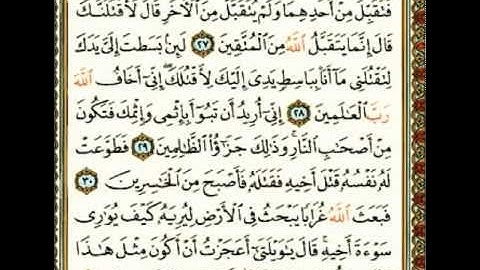 فَتُقُبِّلَ مِنْ أَحَدِهِمَا وَلَمْ يُتَقَبَّلْ مِنَ ٱلْأَخَرِ قَالَ لَأَقْتُلَنَّكَ
قَالَ إِنَّمَا يَتَقَبَّلُ ٱللَّهُ مِنَ ٱلْمُتَّقِينَ ٢٧ لَئِنۢ بَسَطتَ إِلَىَّ يَدَكَ
لِتَقْتُلَنِى مَآ أَنَا۠ بِبَاسِطٍ يَدِىَ إِلَيْكَ لِأَقْتُلَكَ إِنِّىٓ أَخَافُ ٱللَّهَ
رَبَّ ٱلْعَٰلَمِينَ ٢٨ إِنِّىٓ أُرِيدُ أَن تَبُوٓأَ بِإِثْمِى وَإِثْمِكَ فَتَكُونَ
مِنْ أَصْحَٰبِ ٱلنَّارِ وَذَٰلِكَ جَزَٰٓؤُا۟ ٱلظَّٰلِمِينَ ٢٩ فَطَوَّعَتْ
لَهُۥ نَفْسُهُۥ قَتْلَ أَخِيهِ فَقَتَلَهُۥ فَأَصْبَحَ مِنَ ٱلْخَٰسِرِينَ ٣٠
فَبَعَثَ ٱللَّهُ غُرَابًا يَبْحَثُ فِى ٱلْأَرْضِ لِيُرِيَهُۥ كَيْفَ يُوَٰرِى
سَوْءَةَ أَخِيهِ قَالَ يَٰوَيْلَتَىٰٓ أَعَجَزْتُ أَنْ أَكُونَ مِثْلَ هَٰذَا